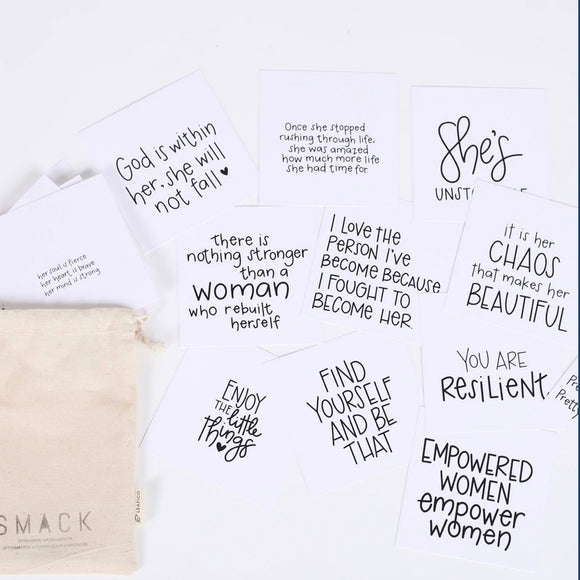 God is within
her, she will
not fall
Once she stopped
rushing through life,
she was amazed
how much more life
she had time for.
She's
her soul is fierce
her heart is brave
her mind is strong
there is
nothing stronger
than a
woman
who rebuilt
herself
I LOVE THE
PERSON I'VE
BECOME BECAUSE
I FOUGHT TO
BECOME HER.
it is her
CHAOS
that makes her
BEAUTIFUL
ENJOY
THE little
things
FIND
YOURSELF
AND BE
THAT
YOU ARE
RESiLiENT
EMPOWERED
WOMEN
empower
women
SMACK
LEAFICO